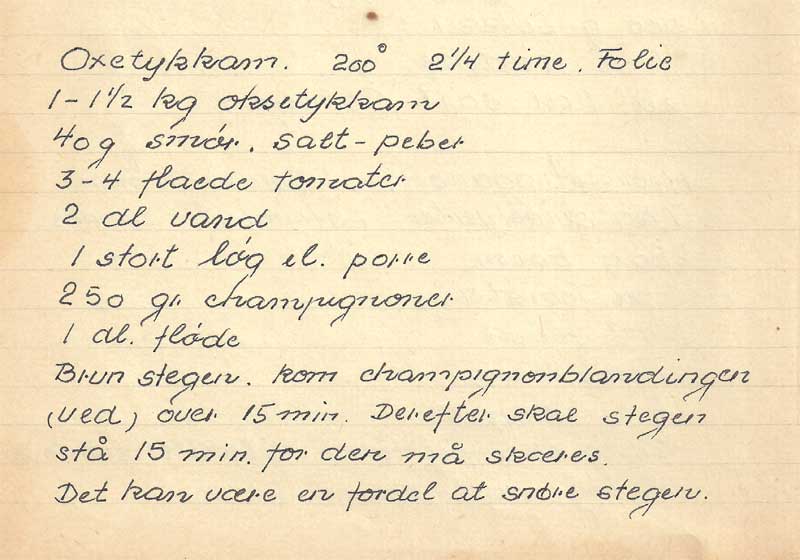 Oxetykkam. 200° 2 1/4 time. Folie
1-1 1/2 kg oksetykkam
40 g smør. salt-peber
3-4 flaede tomater
2 dl vand
1 stort løg el. porre
250 gr champignoner
1 dl. fløde
Brun stegen. kom champignonblandingen
(ved) over 15 min. Derefter skal stegen
stå 15 min. før den må skæres.
Det kan være en fordel at snøre stegen.